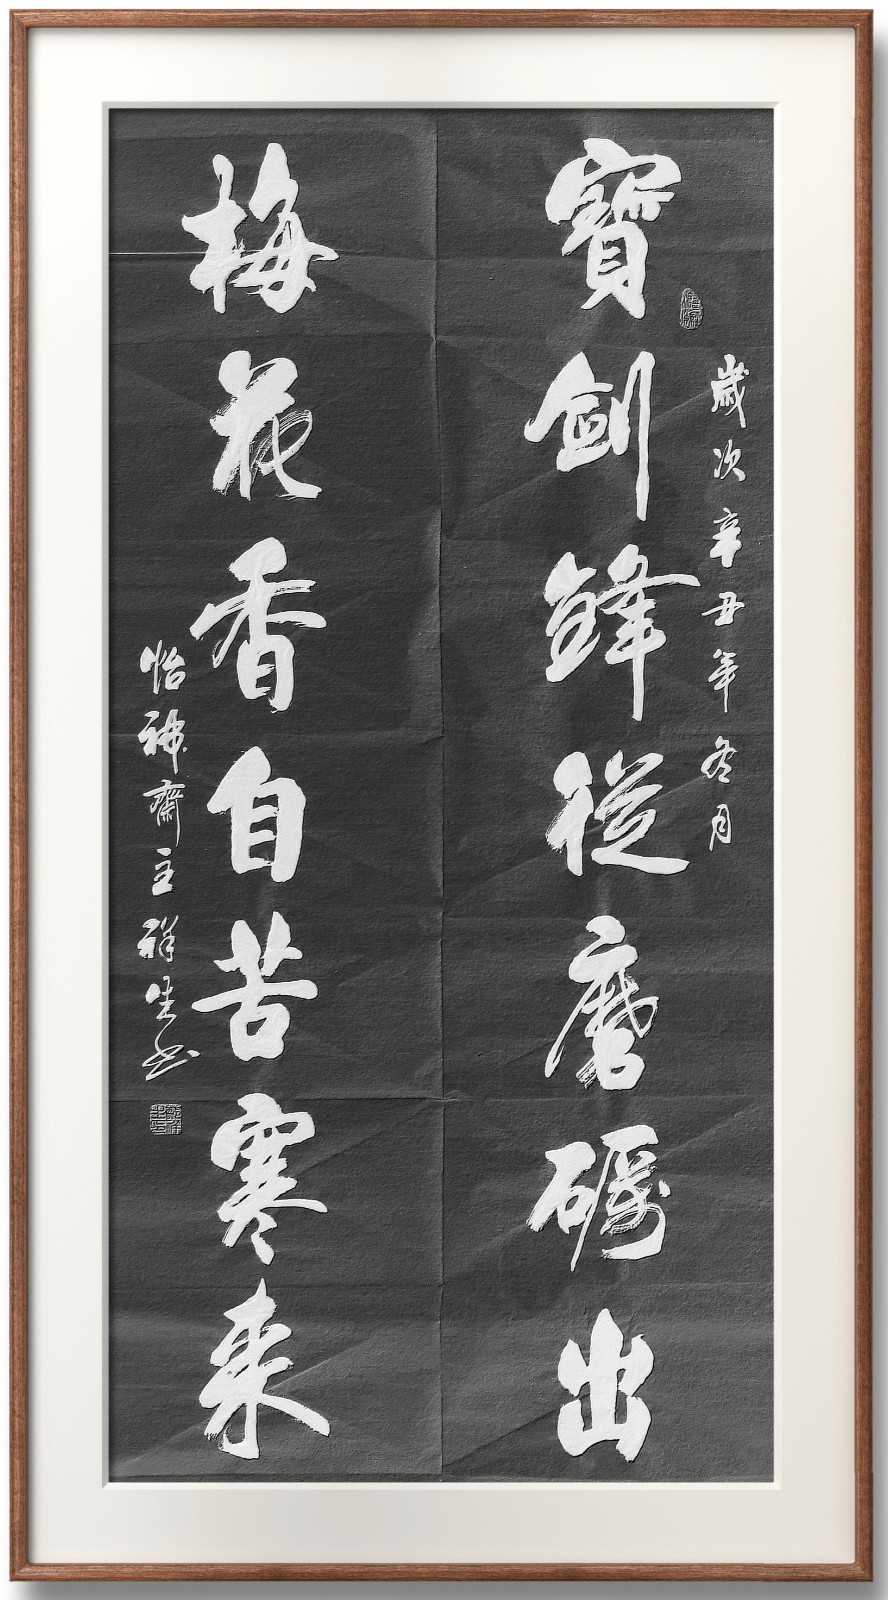 歲次辛丑年冬月
寶劍鋒從磨礪出
梅花香自苦寒來
怡神齋主祥生書